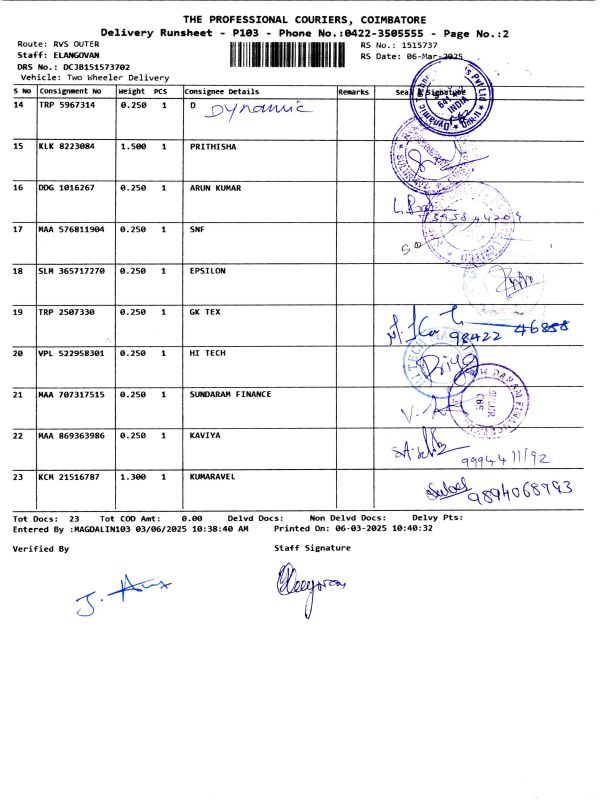 THE PROFESSIONAL COURIERS, COIMBATORE
Delivery Runsheet - P103 - Phone No.:0422-3505555 - Page No.:2
Route: RVS OUTER
RS No.: 1515737
Staff: ELANGOVAN
RS Date: 06-Mar-2025
DRS No.: DCJB151573702
Vehicle: Two Wheeler Delivery
S No Consignment No Weight PCS Consignee Details Remarks Seal & Signature
14 TRP 5967314 0.250 1 D Dynamic
15 KLK 8223084 1.500 1 PRITHISHA
16 DDG 1016267 0.250 1 ARUN KUMAR
17 MAA 576811904 0.250 1 SNF
18 SLM 365717270 0.250 1 EPSILON
19 TRP 2507330 0.250 1 GK TEX
98422 46858
20 VPL 522958301 0.250 1 HI TECH
Priya
21 MAA 707317515 0.250 1 SUNDARAM FINANCE
22 MAA 869363986 0.250 1 KAVIYA
9994411192
23 KCM 21516787 1.300 1 KUMARAVEL
9894068793
Tot Docs: 23 Tot COD Amt: 0.00 Delvd Docs: Non Delvd Docs: Delvy Pts:
Entered By :MAGDALIN103 03/06/2025 10:38:40 AM Printed On: 06-03-2025 10:40:32
Verified By Staff Signature